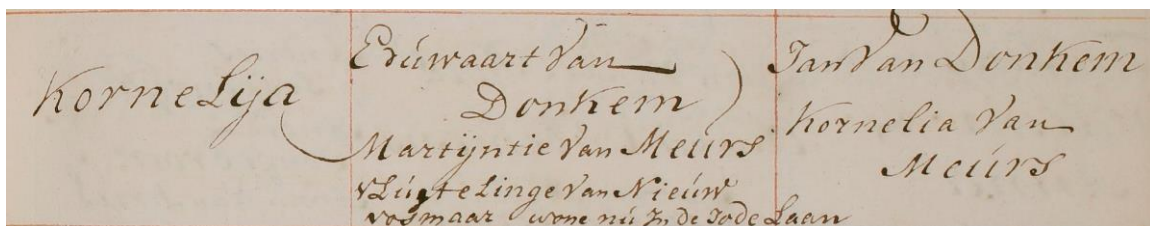 KorneLija
Edúwaart Van
Donkem
Martijntie Van Meúrs
vLúgtelinge Van Nieúw
vosmaar wone nú In de Jode Laan
Jan Van Donkem
Kornelia Van
Meúrs